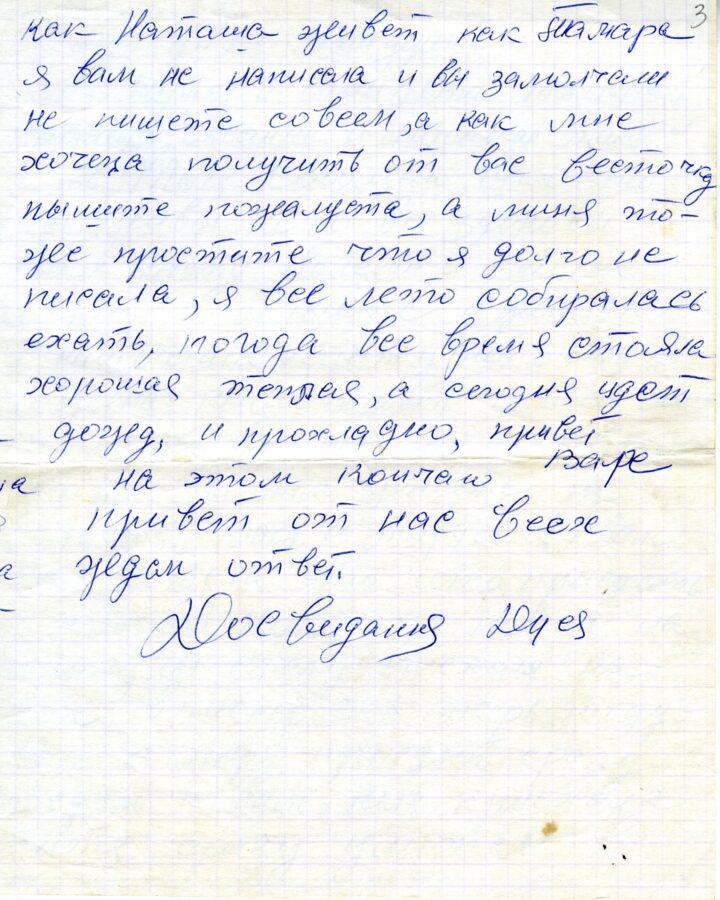 3
как Наташа живет как Тамара
я вам не написала и вы замолчали
не пишете совсем, а как мне
хочеца получить от вас весточку
пышите пожалуста, а миня то-
же простите что я долго не
писала, я все лето собиралась
ехать, погода все время стояла
хорошая теплая, а сегодня идет
дожед, и прохладно, привет
Вале
на этом кончаю
привет от нас всех
ждем ответ.
Досвидания Дуся